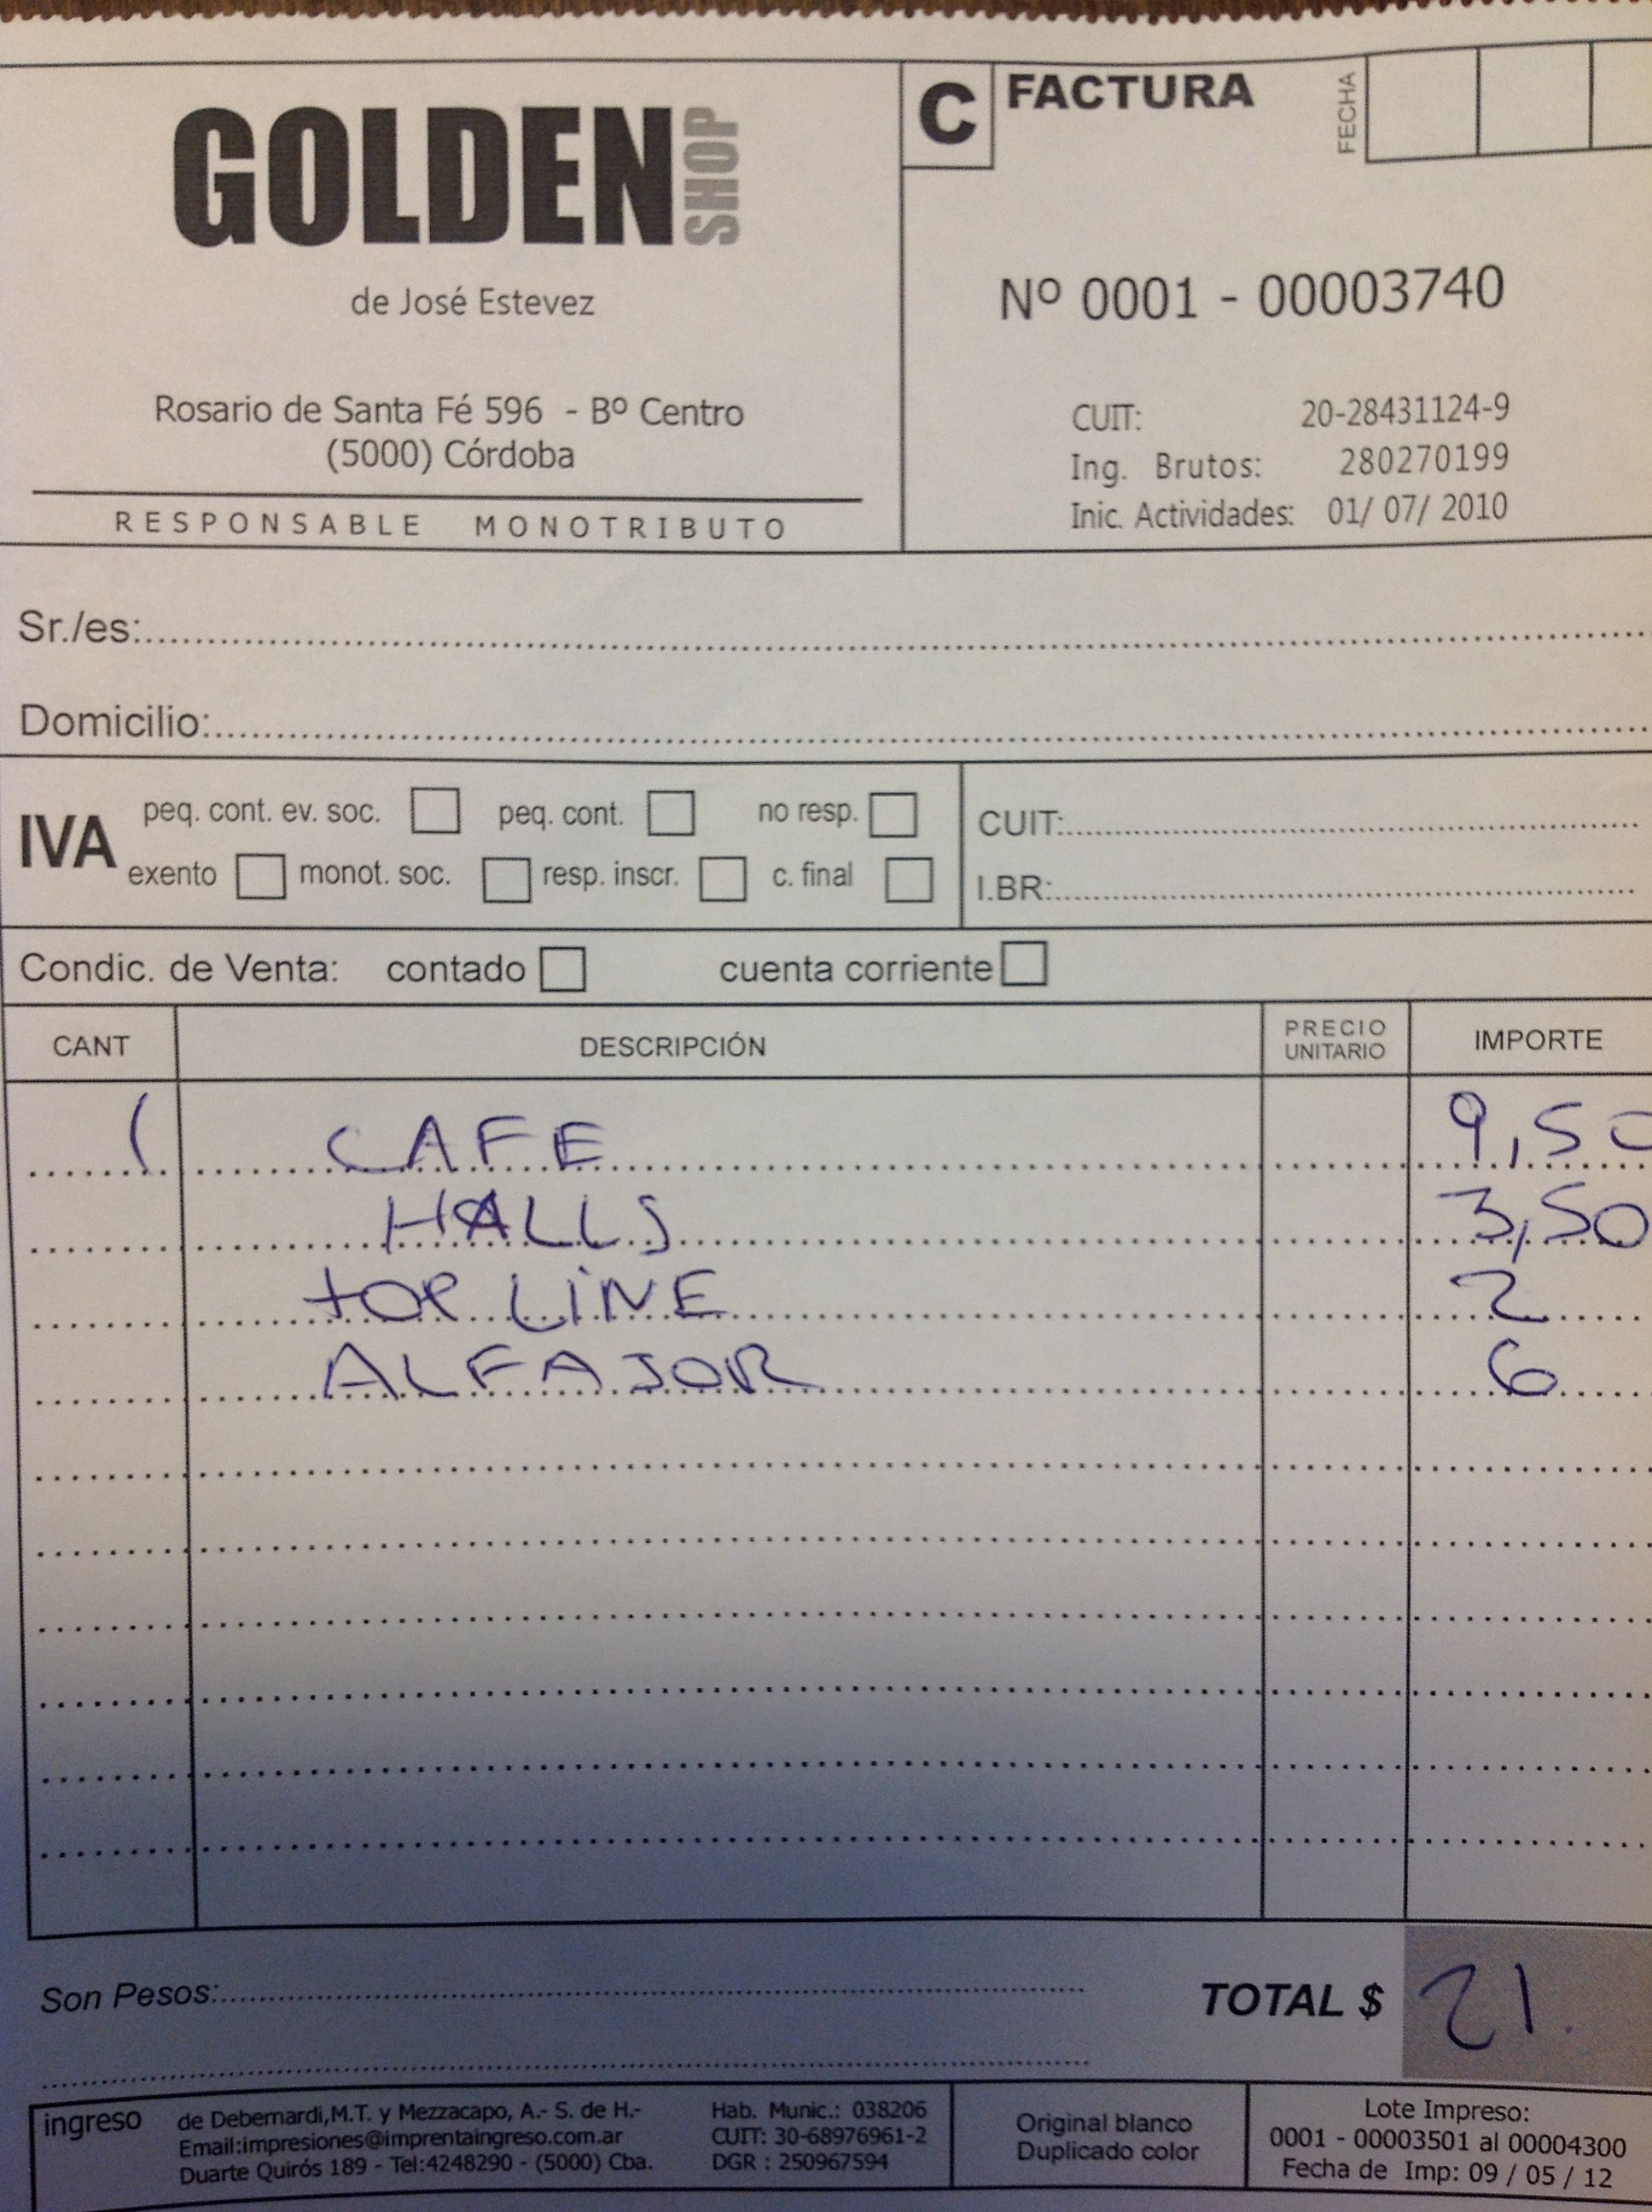 GOLDEN SHOP
C FACTURA
FECHA
de José Estevez
Nº 0001 - 00003740
Rosario de Santa Fé 596 - Bº Centro
(5000) Córdoba
RESPONSABLE MONOTRIBUTO
CUIT: 20-28431124-9
Ing. Brutos: 280270199
Inic. Actividades: 01/ 07/ 2010
Sr./es:
Domicilio:
IVA
peq. cont. ev. soc. peq. cont. no resp.
exento monot. soc. resp. inscr. c. final
CUIT:
I.BR:
Condic. de Venta: contado cuenta corriente
CANT DESCRIPCIÓN PRECIO UNITARIO IMPORTE
1 CAFE 9,50
HALLS 3,50
TOP LINE 2
ALFAJOR 6
Son Pesos: TOTAL $ 21.
ingreso
de Debernardi,M.T. y Mezzacapo, A.- S. de H.-
Email:impresiones@imprentaingreso.com.ar
Duarte Quirós 189 - Tel:4248290 - (5000) Cba.
Hab. Munic.: 038206
CUIT: 30-68976961-2
DGR : 250967594
Original blanco
Duplicado color
Lote Impreso:
0001 - 00003501 al 00004300
Fecha de Imp: 09 / 05 / 12